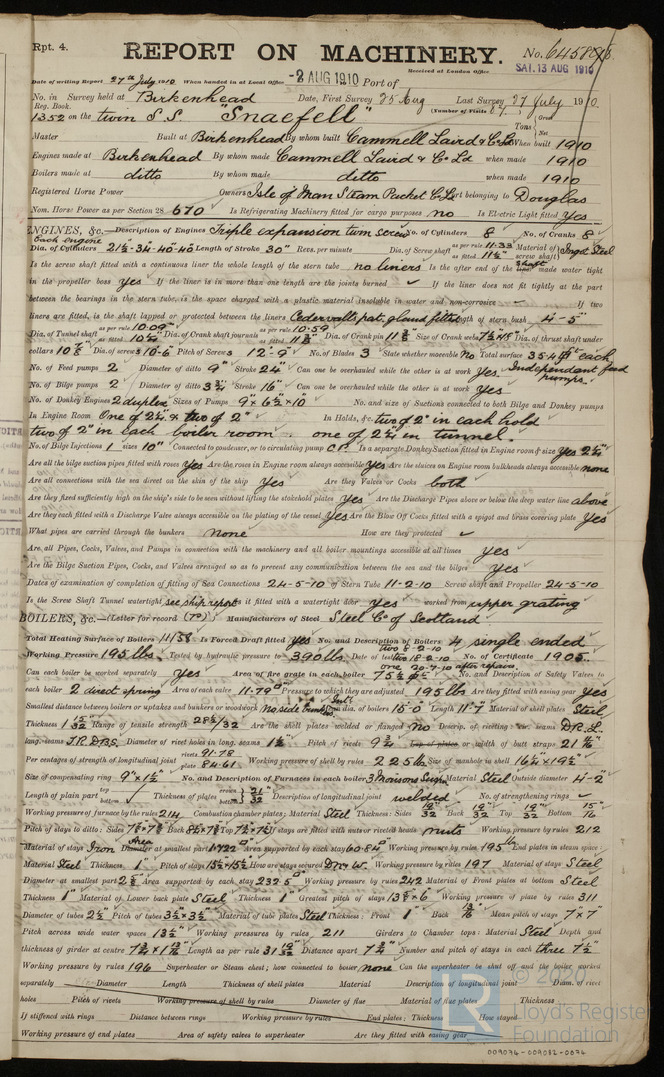 Rpt. 4.
REPORT ON MACHINERY.
No. 64585
Date of writing Report 27th July 1910 When handed in at Local Office -2 AUG 1910 Port of
Received at London Office SAT. 13 AUG 1910
No. in Survey held at Birkenhead Date, First Survey 25 Aug Last Survey 27 July 1910
Reg. Book. (Number of Visits
1352 on the twin S.S. "Snaefell" Tons Gross Net
Master Built at Birkenhead By whom built Cammell Laird & Co Ld When built 1910
Engines made at Birkenhead By whom made Cammell Laird & Co Ld when made 1910
Boilers made at ditto By whom made ditto when made 1910
Registered Horse Power Owners Isle of Man Steam Packet Co Ld Port belonging to Douglas
Nom. Horse Power as per Section 28 670 Is Refrigerating Machinery fitted for cargo purposes no Is Electric Light fitted Yes
ENGINES, &c.—Description of Engines Triple expansion twin screw No. of Cylinders 8 No. of Cranks 8
each engine
Dia. of Cylinders 21½-34-40-40 Length of Stroke 30" Revs. per minute Dia. of Screw shaft as per rule 11.33 as fitted 11½" Material of screw shaft Ingot Steel
Is the screw shaft fitted with a continuous liner the whole length of the stern tube no liners Is the after end of the liner made water tight
in the propeller boss yes If the liner is in more than one length are the joints burned ✓ If the liner does not fit tightly at the part
between the bearings in the stern tube, is the space charged with a plastic material insoluble in water and non-corrosive ✓ If two
liners are fitted, is the shaft lapped or protected between the liners Cedervalls pat. gland fitted Length of stern bush 4-5"
Dia. of Tunnel shaft as per rule 10.09" as fitted Dia. of Crank shaft journals as per rule 10.59 as fitted Dia. of Crank pin Size of Crank webs Dia. of thrust shaft under
collars Dia. of screw 10-6 Pitch of Screw 12-9 No. of Blades 3 State whether moveable no Total surface 35.4 each
No. of Feed pumps 2 Diameter of ditto 9" Stroke 24" Can one be overhauled while the other is at work Yes Independent feed pumps.
No. of Bilge pumps 2 Diameter of ditto 3¾ Stroke 16" Can one be overhauled while the other is at work Yes
No. of Donkey Engines 2 duplex Sizes of Pumps 9" x 6½ x 10" No. and size of Suctions connected to both Bilge and Donkey pumps
In Engine Room One of 2¼ & two of 2" In Holds, &c. two of 2" in each hold
two of 2" in each boiler room. one of 2¼ in tunnel.
No. of Bilge Injections 1 sizes 10" Connected to condenser, or to circulating pump C.P. Is a separate Donkey Suction fitted in Engine room & size Yes 2¼"
Are all the bilge suction pipes fitted with roses Yes Are the roses in Engine room always accessible Yes Are the sluices on Engine room bulkheads always accessible none
Are all connections with the sea direct on the skin of the ship Yes Are they Valves or Cocks both
Are they fixed sufficiently high on the ship's side to be seen without lifting the stokehold plates Yes Are the Discharge Pipes above or below the deep water line above
Are they each fitted with a Discharge Valve always accessible on the plating of the vessel Yes Are the Blow Off Cocks fitted with a spigot and brass covering plate Yes
What pipes are carried through the bunkers none How are they protected ✓
Are all Pipes, Cocks, Valves, and Pumps in connection with the machinery and all boiler mountings accessible at all times Yes
Are the Bilge Suction Pipes, Cocks, and Valves arranged so as to prevent any communication between the sea and the bilges Yes
Dates of examination of completion of fitting of Sea Connections 24-5-10 of Stern Tube 11-2-10 Screw shaft and Propeller 24-5-10
Is the Screw Shaft Tunnel watertight see ship report Is it fitted with a watertight door yes worked from upper grating
BOILERS, &c.—(Letter for record (T)) Manufacturers of Steel Steel Co of Scotland
Total Heating Surface of Boilers 11158 Is Forced Draft fitted Yes No. and Description of Boilers 4 single ended
Working Pressure 195 lbs. Tested by hydraulic pressure to 390 lbs. Date of test two 8-2-10 two 18-2-10 one 20-7-10 after repairs. No. of Certificate 1905
Can each boiler be worked separately yes Area of fire grate in each boiler No. and Description of Safety Valves to
each boiler 2 direct spring Area of each valve 11.79 Pressure to which they are adjusted 195 lbs Are they fitted with easing gear yes
Smallest distance between boilers or uptakes and bunkers or woodwork Mean dia. of boilers 15-0 Length 11-7 Material of shell plates Steel
Thickness 1 15/32 Range of tensile strength 28½/32 Are the shell plates welded or flanged no Descrip. of riveting: cir. seams D.R.L.
long. seams T.R.D.B.S. Diameter of rivet holes in long. seams 1½ Pitch of rivets 9¾ Lap of plates or width of butt straps
Per centages of strength of longitudinal joint rivets 91.78 plate 84.61 Working pressure of shell by rules 225 lbs Size of manhole in shell 16¼ x 19½"
Size of compensating ring 9" x 1½" No. and Description of Furnaces in each boiler 3 Material Steel Outside diameter 4-2"
Length of plain part top bottom Thickness of plates crown bottom 21/32 Description of longitudinal joint welded No. of strengthening rings ✓
Working pressure of furnace by the rules 214 Combustion chamber plates: Material Steel Thickness: Sides 19/32 Back 19/32 Top 19/32 Bottom 15/16
Pitch of stays to ditto: Sides Back Top If stays are fitted with nuts or riveted heads nuts Working pressure by rules 212
Material of stays Iron Diameter Area at smallest part Area supported by each stay Working pressure by rules 195 lbs End plates in steam space:
Material Steel Thickness 1" Pitch of stays 15½ x 15½ How are stays secured D.N.W. Working pressure by rules 197 Material of stays Steel
Diameter at smallest part Area supported by each stay Working pressure by rules 242 Material of Front plates at bottom Steel
Thickness 1" Material of Lower back plate Steel Thickness 1" Greatest pitch of stays Working pressure of plate by rules 311
Diameter of tubes 2½" Pitch of tubes Material of tube plates Steel Thickness: Front 1" Back 13/16 Mean pitch of stays 7" x 7"
Pitch across wide water spaces 13½" Working pressures by rules 211 Girders to Chamber tops: Material Steel Depth and
thickness of girder at centre Length as per rule 31 19/32 Distance apart 7¾" Number and pitch of stays in each three 7½"
Working pressure by rules 196 Superheater or Steam chest; how connected to boiler none Can the superheater be shut off and the boiler worked
separately Diameter Length Thickness of shell plates Material Description of longitudinal joint Diam. of rivet
holes Pitch of rivets Working pressure of shell by rules Diameter of flue Material of flue plates Thickness
If stiffened with rings Distance between rings Working pressure by rules End plates: Thickness How stayed
Working pressure of end plates Area of safety valves to superheater Are they fitted with easing gear
© 2020
Lloyd's Register
Foundation
009074-009082-0074